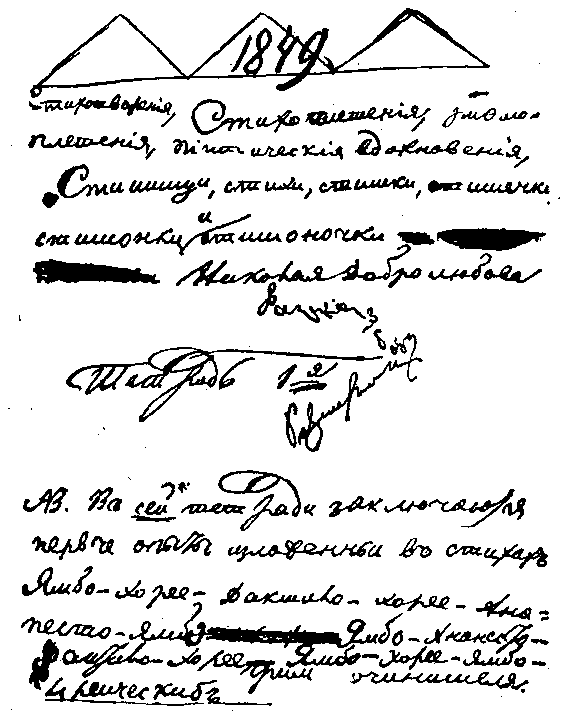 1849.
Стихотворенія, Стихоплетенія, риѳмо-
плетенія, піитическія вдохновенія,
Стишищи, стихи, стишки, стишечки
стишонки и стишоночки
Николая Добролюбова
Тетрадь 1я
NB. Въ сей тетради заключаются
первые опыты изложенныи въ стихахъ
Ямбо-хорее-дактило-хорее-Ана=
песто-ямбо Ямбо-Анапесто-
Дактило-хорее Ямбо-хорее-ямбо-
прим. очинителя.